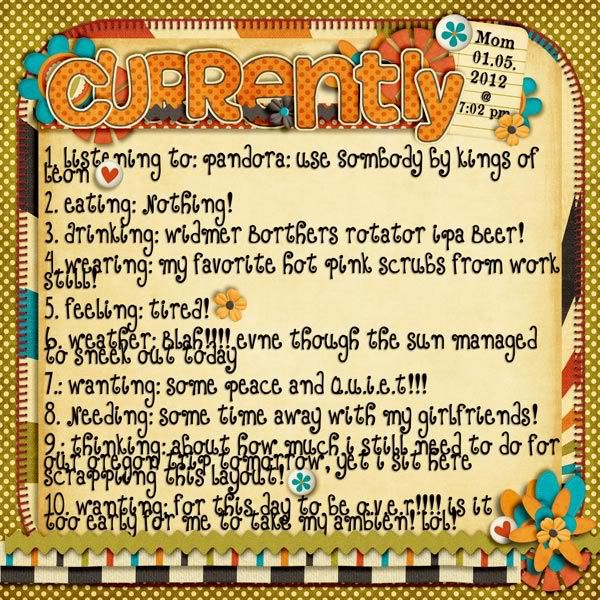 Currently
Mom
01.05.
2012
@
7:02 pm
1. Listening to: Pandora: Use Sombody by Kings of
Leon
2. eating: Nothing!
3. drinking: Widmer Borthers rotator ipa Beer!
4. wearing: my favorite hot pink scrubs from work
still!
5. feeling: tired!
6. weather: Blah!!!! evne though the sun managed
to sneek out today
7.: wanting: some peace and Q.u.i.e.t!!!
8. Needing: some time away with my girlfriends!
9.: thinking: about how much i still need to do for
our oregon trip tomorrow, yet i sit here
scrapping this layout!
10. wanting: for this day to be o.v.e.r!!!! is it
too early for me to take my ambien! lol!